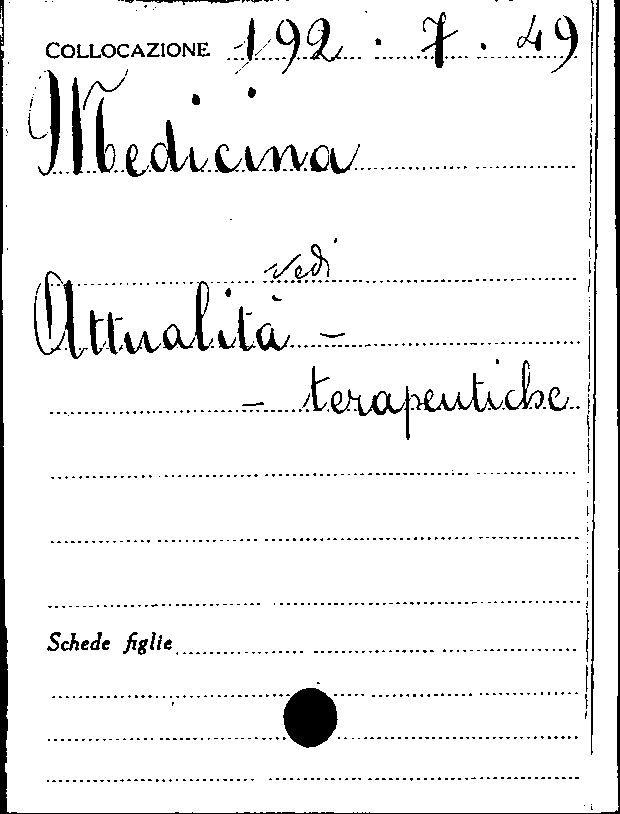 COLLOCAZIONE 192 . 7 . 49
Medicina
vedi
Attualità -
- terapeutiche
Schede figlie